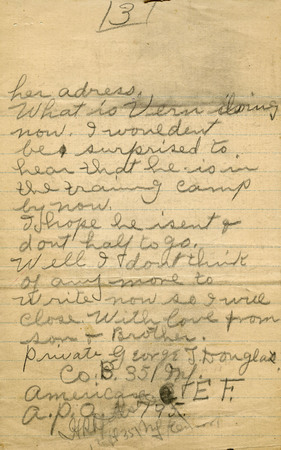 3
her adress.
What is Vern doing
now. I wouldent
be surprised to
hear that he is in
the training camp
by now.
I hope he isent &
dont half to go.
Well I dont think
of any more to
write now so I will
close With love from
son & Brother.
Private George J. Douglas
Co. B. 351 Inf.
American E F.
A. P. O. 795.